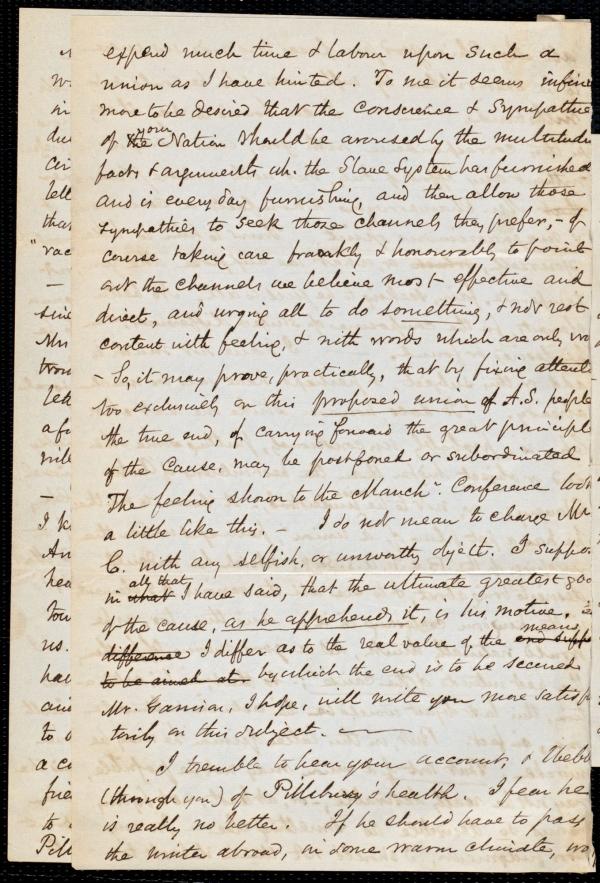 expend much time & labour upon such a
union as I have hinted. To me it seems infin
more to be desired that the conscience & sympathie
of the your Nation should be aroused by the multitude
facts & arguments wh. the Slave System has furnished
and is every day furnishing, and then allow those
sympathies to seek those channels they prefer, - of
course taking care frankly & honourably to point
out the channels we believe most effective and
direct, and urging all to do something, & not rest
content with feeling, & with words which are only wo
- So, it may prove, practically, that by fixing attenti
too exclusively on this proposed union of A.S. people
the true end, of carrying forward the great principl
of the Cause, may be postponed or subordinated
The feeling shown to the Manchr. Conference look
a little like this. - I do not mean to charge Mr
C. with any selfish, or unworthy object. I suppo
in what all that I have said, that the ultimate greatest goo
of the cause, as he apprehends it, is his motive.
difference I differ as to the real value of the end means
to be aimed at by which the end is to be secured
Mr. Garrison, I hope, will write you more satisf
torily on this subject.
I tremble to hear your account, & Webb
(through you) of Pillsbury's health. I fear he
is really no better. If he should have to pass
the winter abroad, in some warm climate, wo
w
in
du
cir
lett
that
"vac
-
sinc
Mr
trou
let
a fo
will
-
I k
An
hea
tou
us.
hav
and
to
a c
frie
to
Pill